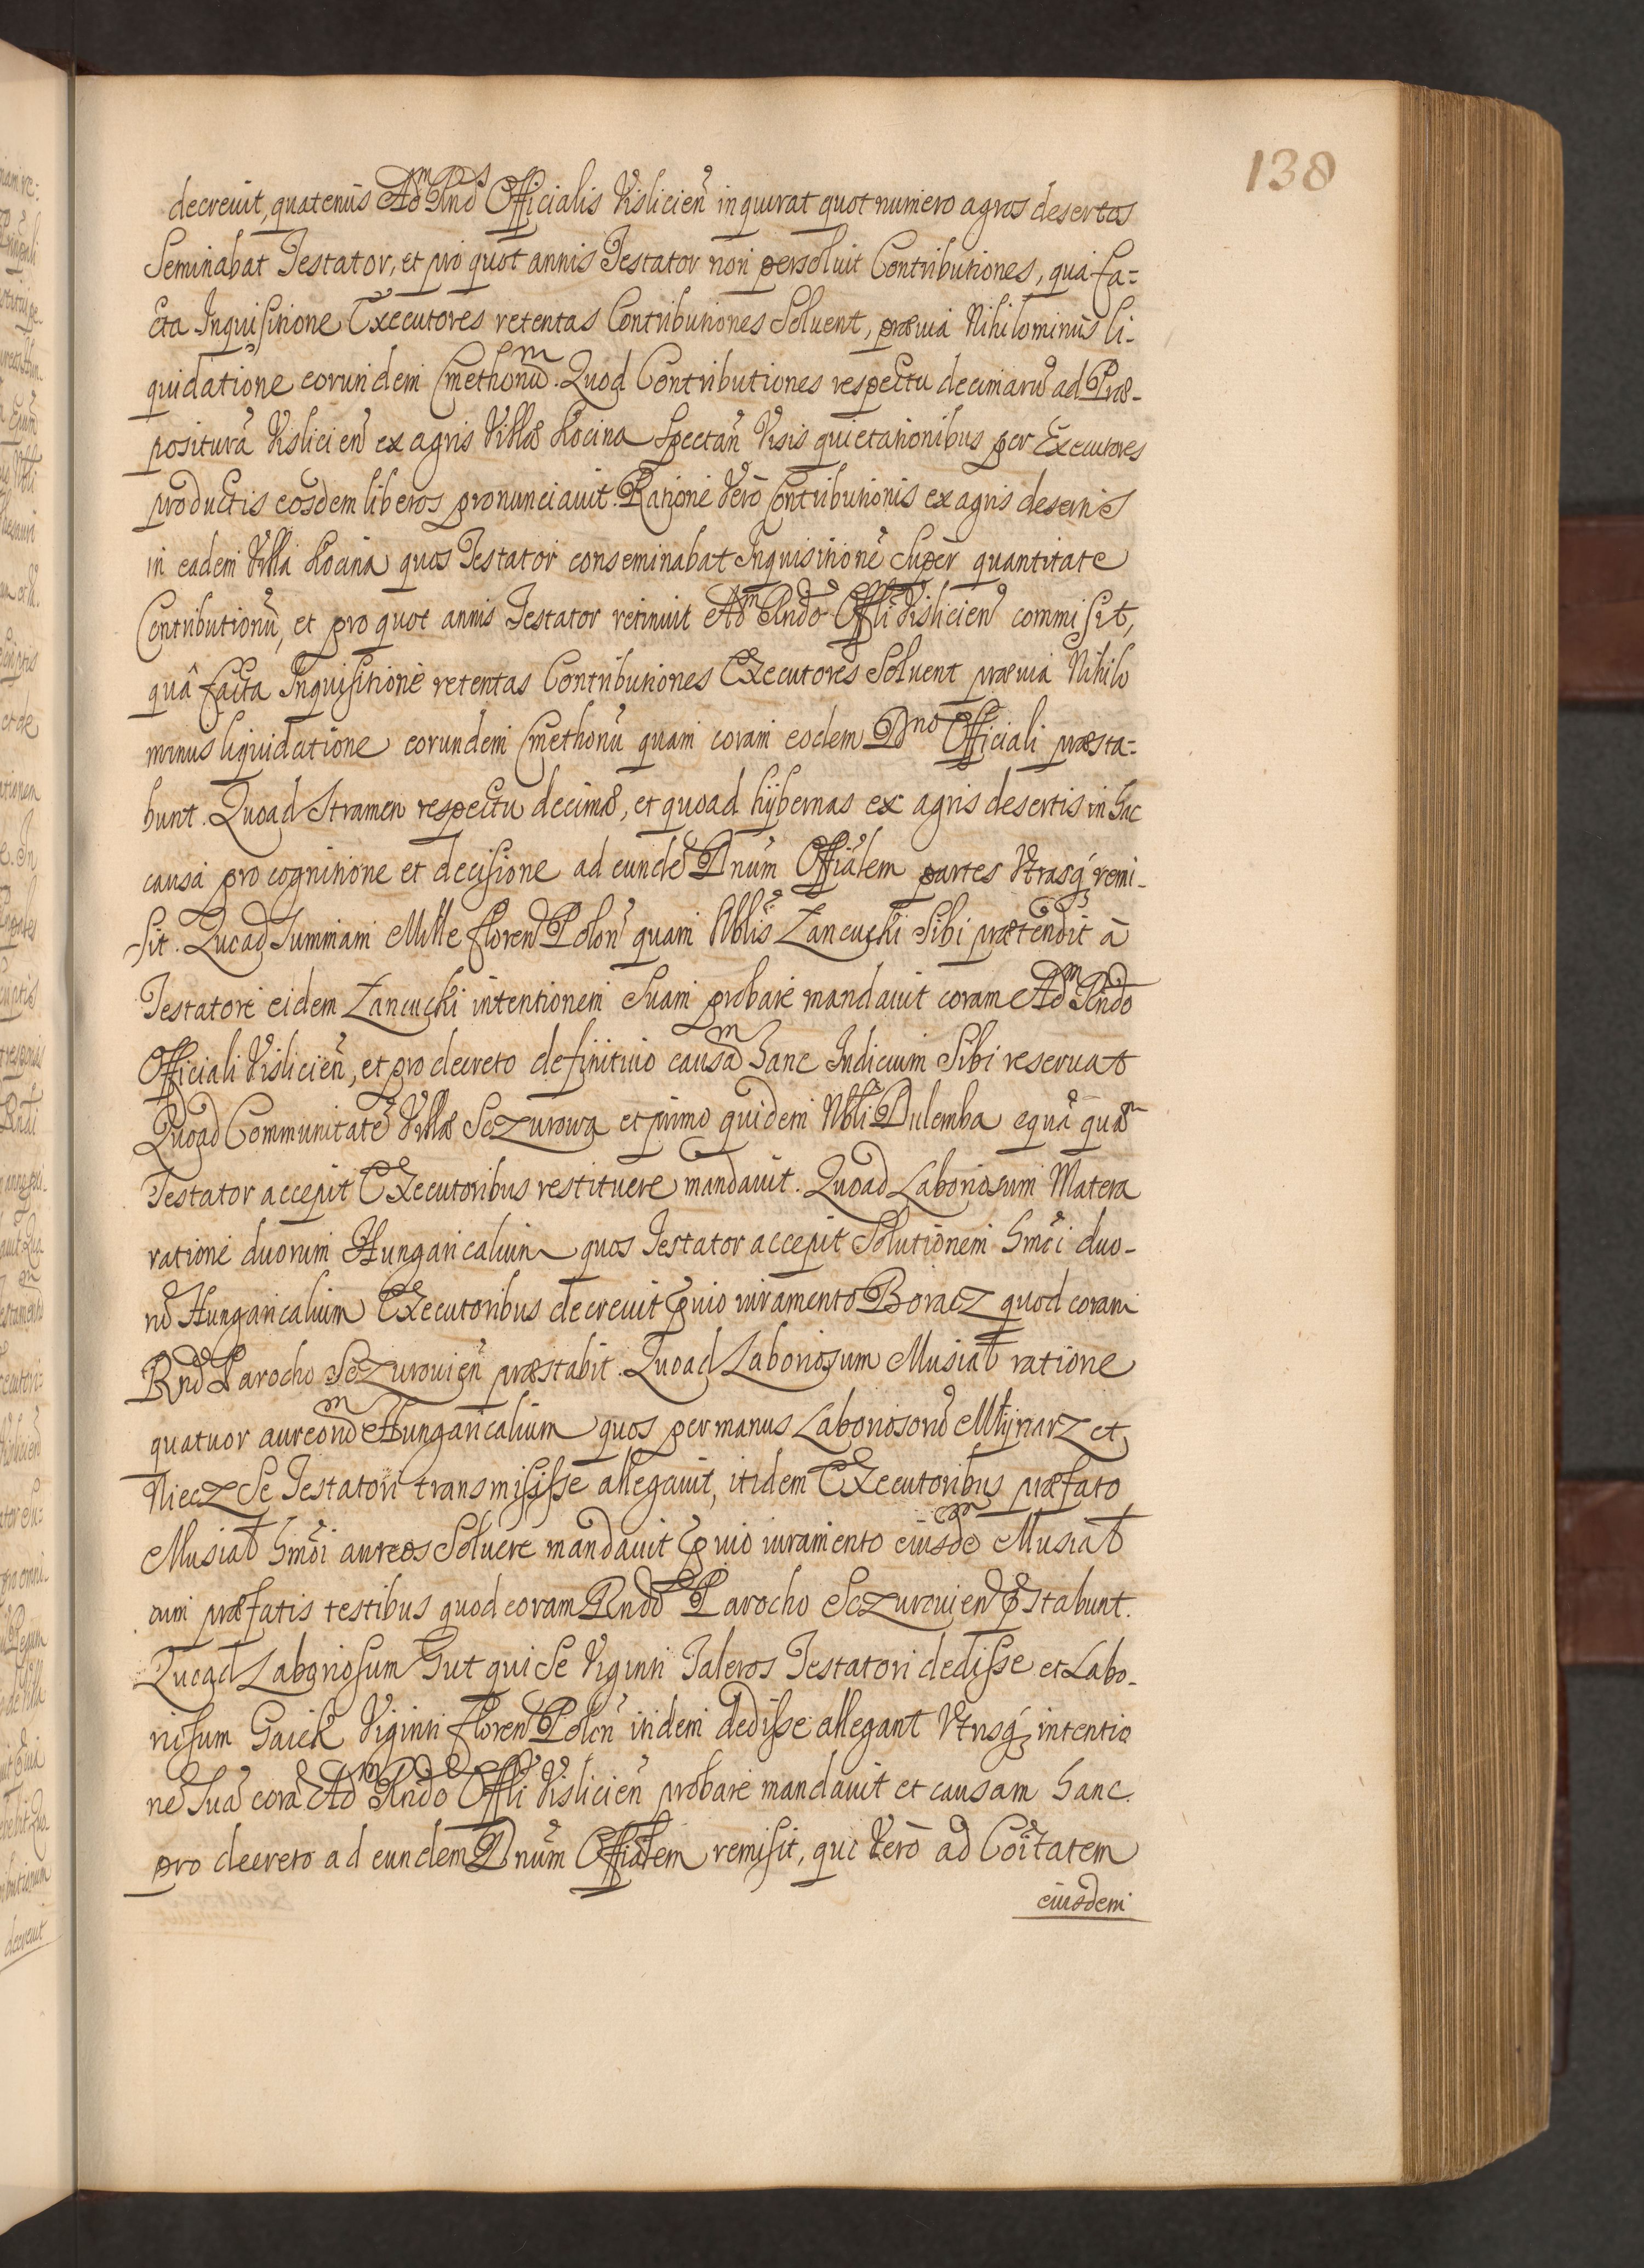 138
decreuit, quatenus Adm Rnds Officialis Vislicien̄ inquirat quot numero agros desertos
Seminabat Testator, et pro quot annis Testator non persoluit Contributiones, qua fa=
cta Inquisitione Executores retentas Contributiones Soluent, præuia Nihilominus li-
quidatione eorundem Cmethonum. Quod Contributiones respectu decimarū ad Præ-
positurā Vislicien̄ ex agris Villæ Kocina Spectan̄ Visis quietationibus per Executores
productis eosdem liberos pronunciauit. Ratione Verò Contributionis ex agris desertis
in eadem Villa Kocina quos Testator conseminabat Inquisitionē Super quantitate
Contributionū, et pro quot annis Testator retinuit Adm Rndo Offli Vislicien̄ commisit,
quâ facta Inquisitione retentas Contributiones Executores Soluent præuia Nihilo
minus liquidatione eorundem Cmethonū quam coram eodem Dno Officiali præsta=
bunt. Quoad Stramen respectu decimæ, et quoad hÿbernas ex agris desertis in hac
causa pro cognitione et decisione ad eundē Dnum Offialem partes Vtrasq remi-
sit. Quoad Summam Mille floren̄ Polon̄ quam Nblis Zancucki Sibi prætendit à
Testatore eidem Zancucki intentionem Suam probare mandauit coram Adm Rndo
Officiali Vislicien̄, et pro decreto definitiuo causam hanc Iudicium Sibi reseruat
Quoad Communitatē Villæ Sczurowa et primo quidem Nbli Dulemba equā quam
Testator accepit Executoribus restituere mandauit. Quoad Laboriosum Matera
ratione duorum Hungaricalium quos Testator accepit Solutionem hmoi duo-
rū Hungaricalium Executoribus decreuit puio iuramento Boracz quod coram
Rndo Parocho Sczurouien̄ præstabit. Quoad Laboriosum Musiał ratione
quatuor aureorum Hungaricalium quos per manus Laboriosorū Młÿnarz et
Niecz Se Testatori transmisisse allegauit, itidem Executoribus præfato
Musiał hmoi aureos Soluere mandauit puio iuramento eiusdem Musiał
cum præfatis testibus quod coram Rndo Parocho Sczurouien̄ pstabunt.
Quoad Laboriosum Gut qui Se Viginti Taleros Testatori dedisse et Labo-
riosum Gaick Viginti floren̄ Polon̄ itidem dedisse allegant Vtrisq intentio
nē Suā corā Adm Rndo Offli Vislicien̄ probare mandauit et causam hanc
pro decreto ad eundem Dnum Offialem remisit, qui Verò ad Coitatem
eiusdem